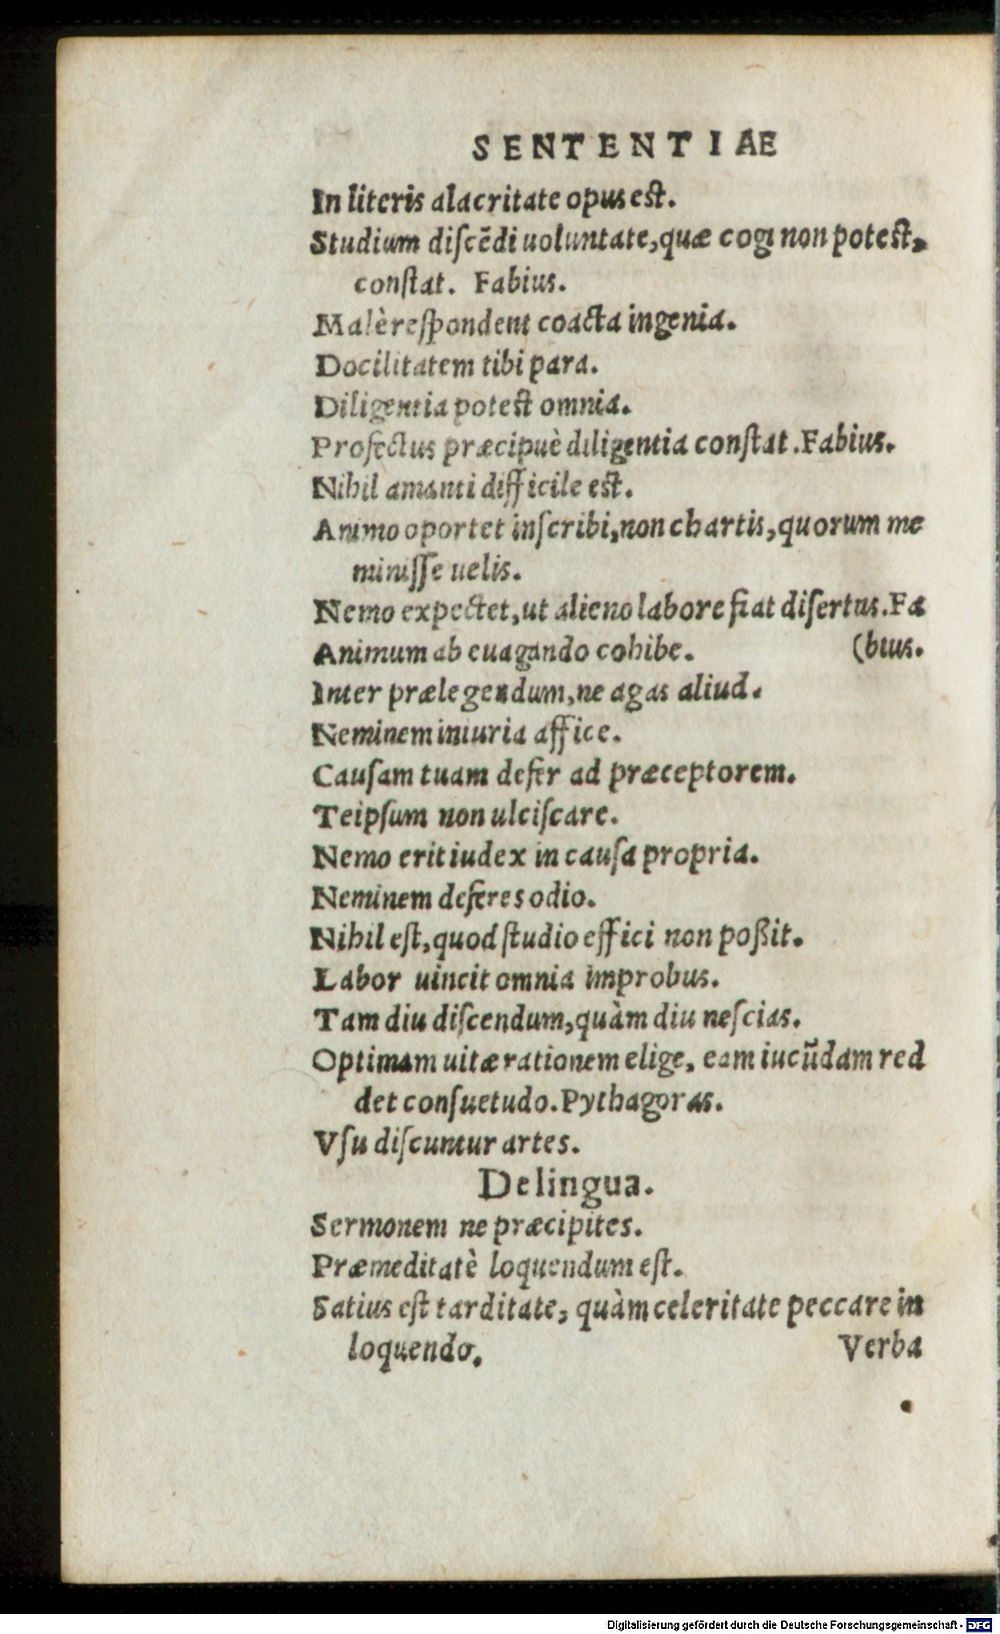 SENTENTIAE
In literis alacritate opus est.
Studium discēdi uoluntate, quæ cogi non potest,
constat. Fabius.
Malè respondent coacta ingenia.
Docilitatem tibi para.
Diligentia potest omnia.
Profectus præcipuè diligentia constat. Fabius.
Nihil amanti difficile est.
Animo oportet inscribi, non chartis, quorum me
minisse uelis.
Nemo expectet, ut alieno labore fiat disertus. Fa
Animum ab euagando cohibe. (bius.
Inter prælegendum, ne agas aliud.
Neminem iniuria affice.
Causam tuam defer ad præceptorem.
Teipsum non ulciscare.
Nemo erit iudex in causa propria.
Neminem deferes odio.
Nihil est, quod studio effici non poßit.
Labor uincit omnia improbus.
Tam diu discendum, quàm diu nescias.
Optimam uitæ rationem elige, eam iucūdam red
det consuetudo. Pythagoras.
Vsu discuntur artes.
De lingua.
Sermonem ne præcipites.
Præmeditatè loquendum est.
Satius est tarditate, quàm celeritate peccare in
loquendo. Verba
Digitalisierung gefördert durch die Deutsche Forschungsgemeinschaft - DFG